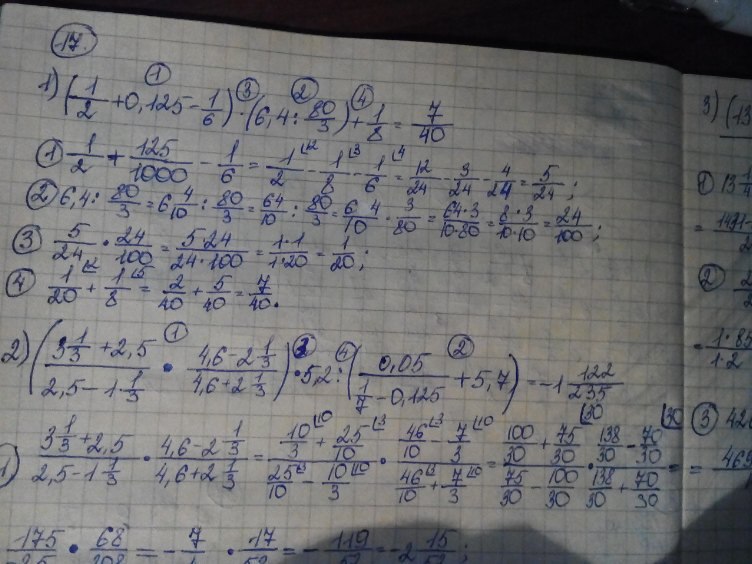 17.
1) (1/2 + 0,125 - 1/6) · (6,4 : 80/3) + 1/8 = 7/40
① 1/2 + 125/1000 - 1/6 = 1/2 - 1/8 - 1/6 = 12/24 - 3/24 - 4/24 = 5/24;
② 6,4 : 80/3 = 6 4/10 : 80/3 = 64/10 : 80/3 = 6 4/10 · 3/80 = 64·3/10·80 = 8·3/10·10 = 24/100;
③ 5/24 · 24/100 = 5·24/24·100 = 1·1/1·20 = 1/20;
④ 1/20 + 1/8 = 2/40 + 5/40 = 7/40.
2) (3 1/3 + 2,5 / 2,5 - 1 1/3 · 4,6 - 2 1/3 / 4,6 + 2 1/3) · 5,2 : (0,05 / 1/7 - 0,125 + 5,7) = -1 122/235
1) 3 1/3 + 2,5 / 2,5 - 1 1/3 · 4,6 - 2 1/3 / 4,6 + 2 1/3 = 10/3 + 25/10 / 25/10 - 10/3 · 46/10 - 7/3 / 46/10 + 7/3 = 100/30 + 75/30 / 75/30 - 100/30 · 138/30 - 70/30 / 138/30 + 70/30 =
175 · 68 = - 7 · 17 = - 119 = - 2 15 ;
3) (13
① 13 1
②
1·85
1·2
③ 420
= 469